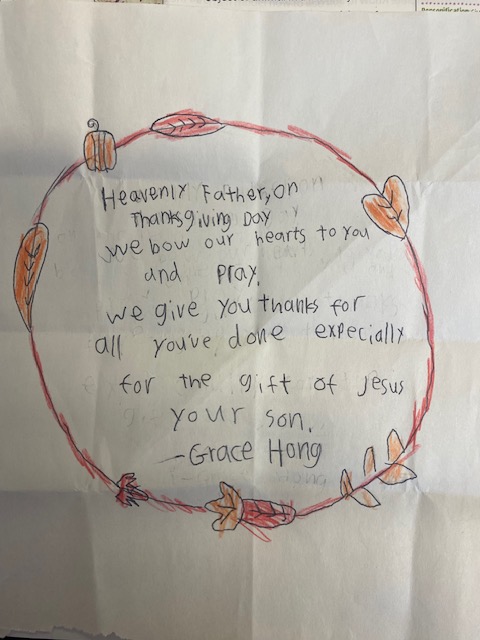 Heavenly Father, on
Thanksgiving Day
we bow our hearts to you
and pray.
we give you thanks for
all you've done expecially
for the gift of Jesus
your son.
-Grace Hong